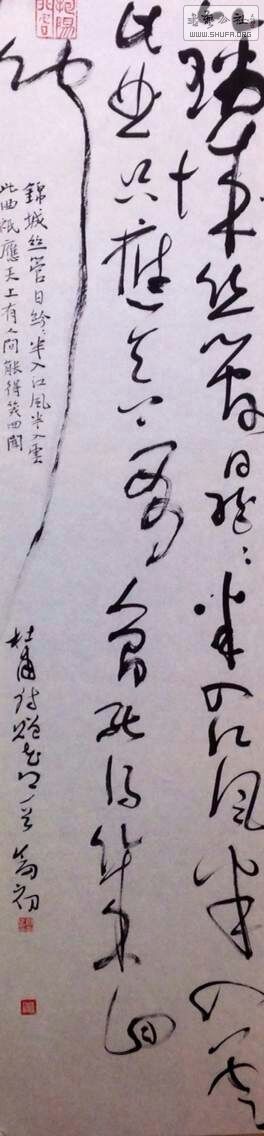 錦城丝管日紛〻半入江風半入雲
此曲只應天上有人间能得幾回
闻
錦城丝管日紛〻半入江風半入雲
此曲祇應天上有人间能得幾回聞
杜甫詩贈花卿
書法公社
WWW.SHUFA.ORG